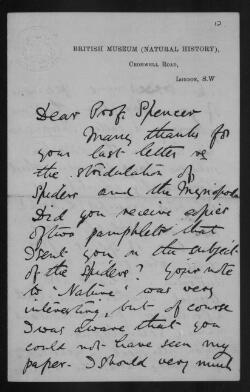 10
BRITISH MUSEUM (NATURAL HISTORY),
CROMWELL ROAD,
LONDON, S.W
Dear Prof: Spencer
Many thanks for
your last letter re
the stridulation of
Spiders and the Myriopoda
Did you receive copies
of two pamphlets that
I sent you on the subject
of the Spiders? Your note
to "Nature" was very
interesting, but of course
I was aware that you
could not have seen my
paper. I should very much